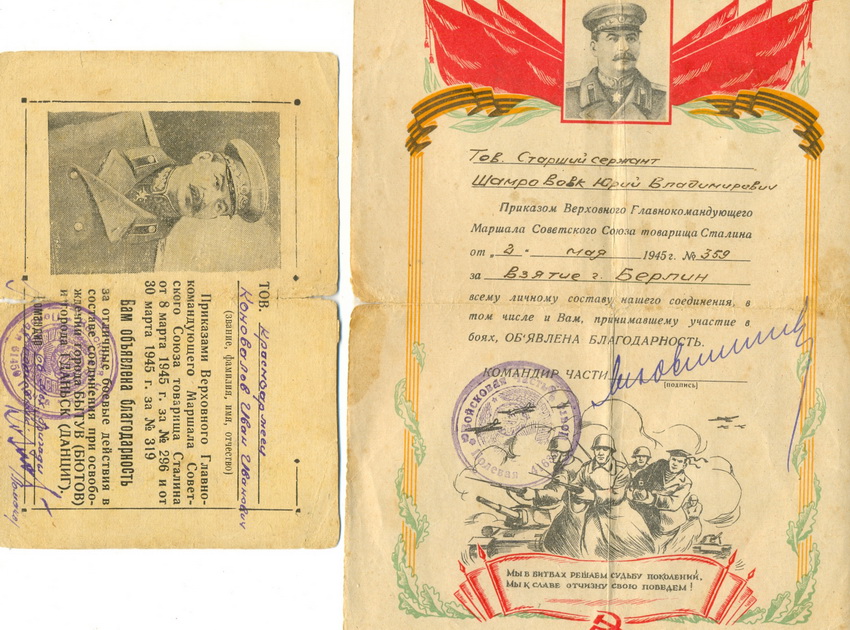 ТОВ. Красноармеец
Коновалов Иван Иванович
(звание, фамилия, имя, отчество)
Приказами Верховного Главно-
командующего Маршала Совет-
ского Союза товарища Сталина
от 8 марта 1945 г. за № 296 и от
30 марта 1945 г. за № 319
Вам объявлена благодарность
за отличные боевые действия в
составе соединения при освобо-
ждении города БЫТУВ (БЮТОВ)
и города ГДАНЬСК (ДАНЦИГ).
Тов. Старший сержант
Шамро Вовк Юрий Владимирович
Приказом Верховного Главнокомандующего
Маршала Советского Союза товарища Сталина
от „2 " мая 1945 г. № 359
за Взятие г. Берлин
всему личному составу нашего соединения, в
том числе и Вам, принимавшему участие в
боях, ОБ'ЯВЛЕНА БЛАГОДАРНОСТЬ.
КОМАНДИР ЧАСТИ
(подпись)
Войсковая часть
Полевая
МЫ В БИТВАХ РЕШАЕМ СУДЬБУ ПОКОЛЕНИЙ,
МЫ К СЛАВЕ ОТЧИЗНУ СВОЮ ПОВЕДЕМ!